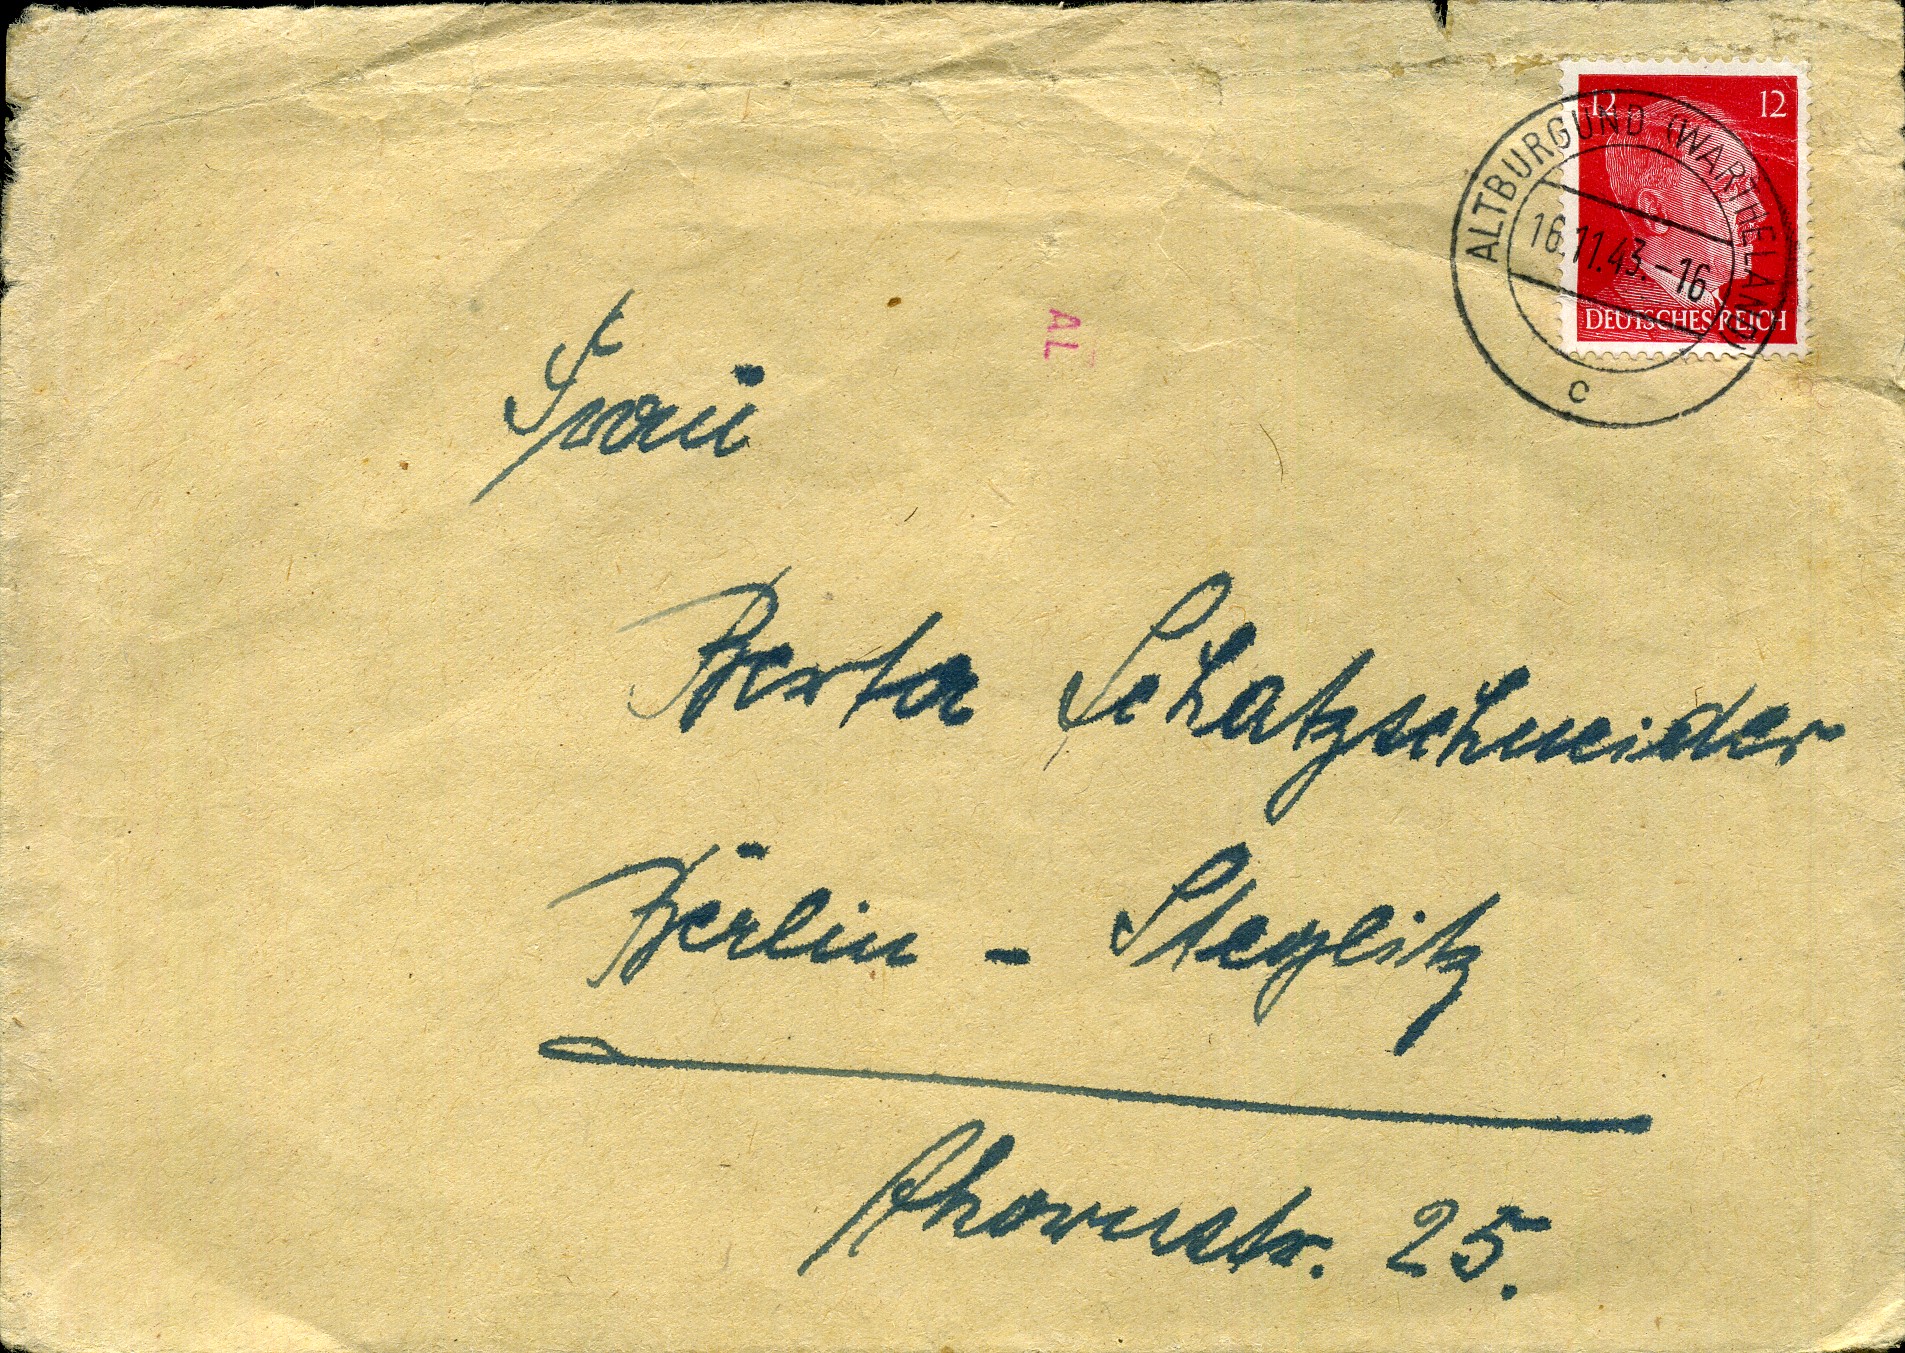 12 12
ALTBURGUND (WARTHELAND)
16.11.43.-16
DEUTSCHES REICH
c
AL
Frau
Berta Schatzschneider
Berlin - Steglitz
Ahornstr. 25.